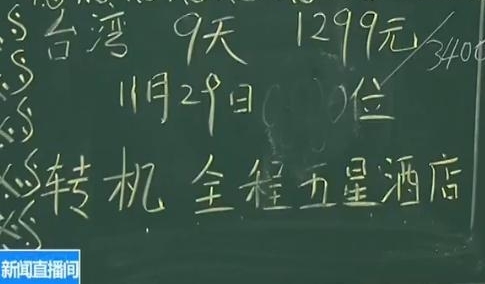 台湾 9天 1299元/3400
11月29日( )位
转机 全程五星酒店
新闻直播间